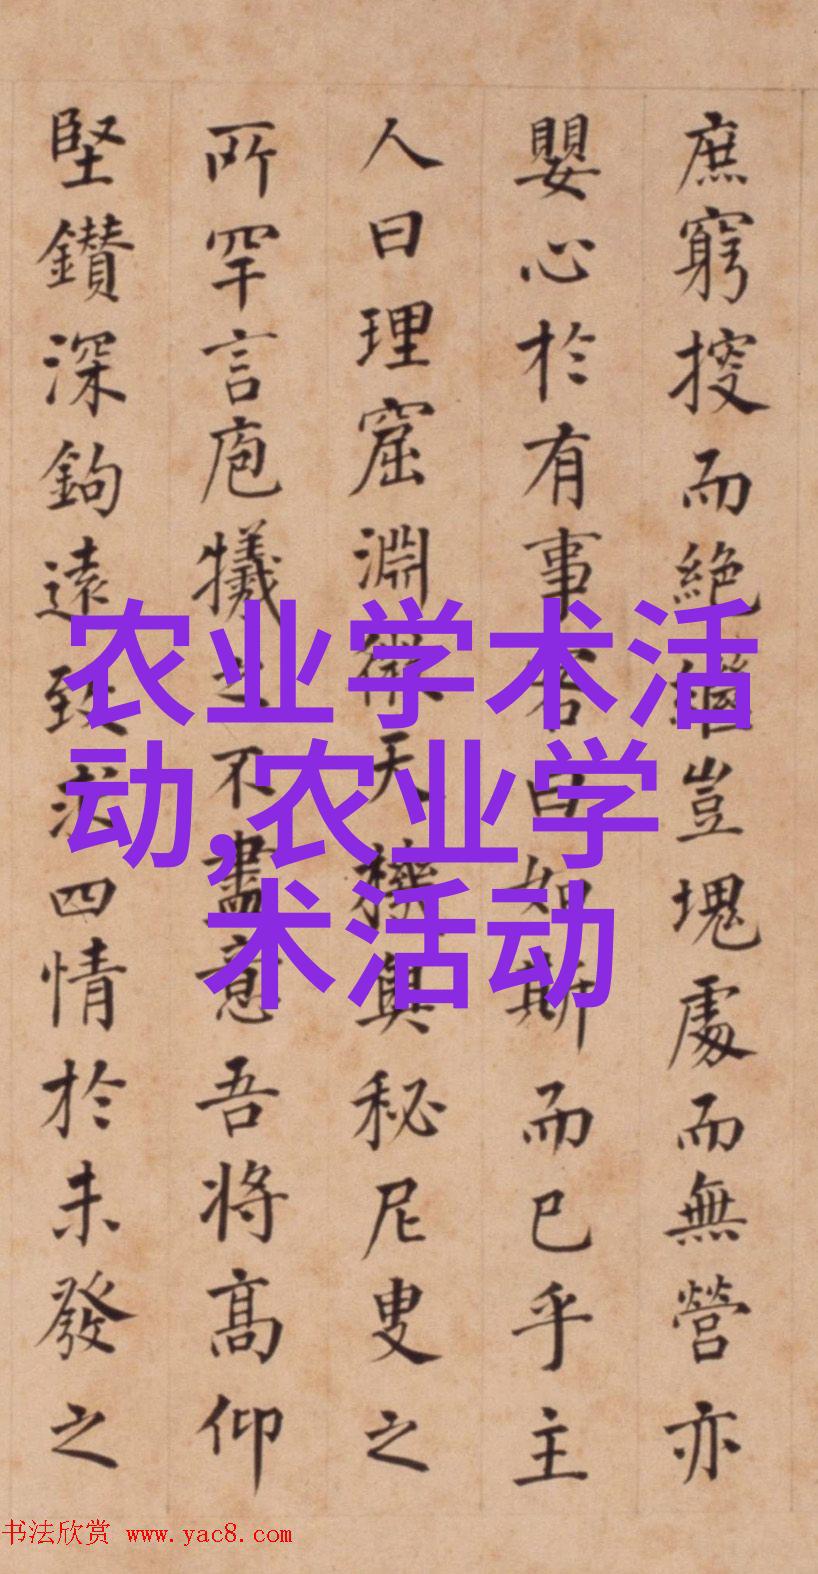 庶窮搜而絶豈塊處而無營亦
嬰心於有事客曰如斯而已乎主
人曰理窟淵微天機奧秘尼叟之
所罕言庖犧之不盡意吾将髙仰
堅鑽深鉤遠致求四情於未發之
农业学术活
动,农业学
术活动
书法欣赏 www.yac8.com